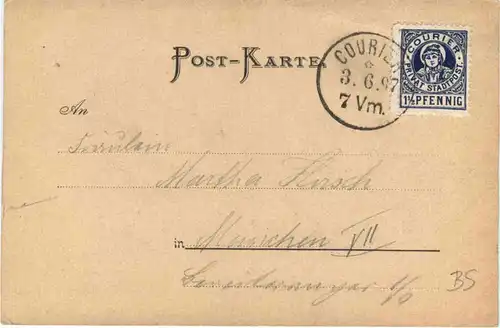 POST-KARTE.
COURIER
3. 6. 97
7 Vm.
COURIER
PRIVAT STADTPOST
1½ PFENNIG
An
Fräulein
Martha Hirsch
in München VII
BS